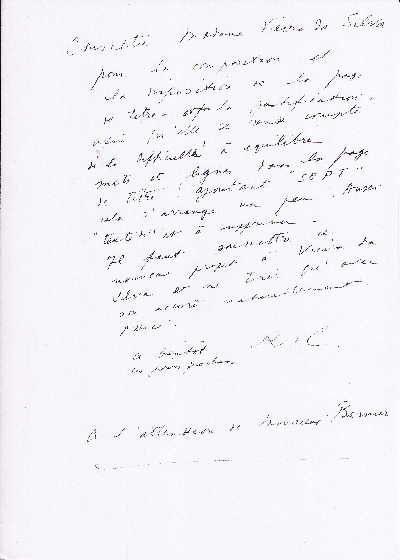 Consulter Madame Vieira da Silva
pour la composition et
la disposition de la page
de titre et la justification.
afin qu'elle se rende compte
de la difficulté à équilibrer
mots et lignes dans la page
de titre ; ajoutant "SEPT"
cela s'arrange un peu. Aussi
"textes" est à supprimer.
Il faut soumettre ce
nouveau projet à Vieira da
Silva et ne tirer qu'avec
son accord naturellement
merci.
à bientôt
les jours prochains
A l'attention de Monsieur Bernar